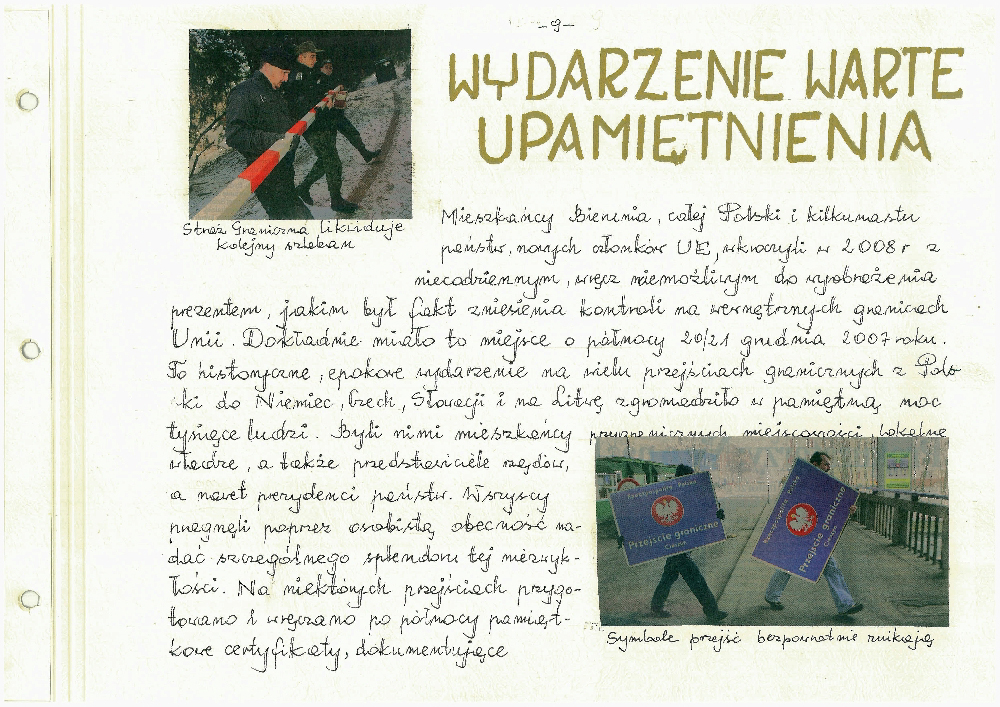 - 9 -
WYDARZENIE WARTE
UPAMIĘTNIENIA
Straż Graniczna likwiduje
kolejny szlaban
Mieszkańcy Bierunia, całej Polski i kilkunastu
państw, nowych członków UE, wkroczyli w 2008 r z
niecodziennym, wręcz niemożliwym do wyobrażenia
prezentem, jakim był fakt zniesienia kontroli na wewnętrznych granicach
Unii. Dokładnie miało to miejsce o północy 20/21 grudnia 2007 roku.
To historyczne, epokowe wydarzenie na wielu przejściach granicznych z Pols
ki do Niemiec, Czech, Słowacji i na Litwę zgromadziło w pamiętną noc
tysiące ludzi. Byli nimi mieszkańcy przygranicznych miejscowości, lokalne
władze, a także przedstawiciele rządów,
a nawet prezydenci państw. Wszyscy
pragnęli poprzez osobistą obecność na-
dać szczególnego splendoru tej niezwyk-
łości. Na niektórych przejściach przygo-
towano i wręczano po północy pamiąt-
kowe certyfikaty, dokumentujące
Rzeczpospolita Polska
Przejście graniczne
Cieszyn
Rzeczpospolita Polska
Przejście graniczne
Symbole przejść bezpowrotnie znikają